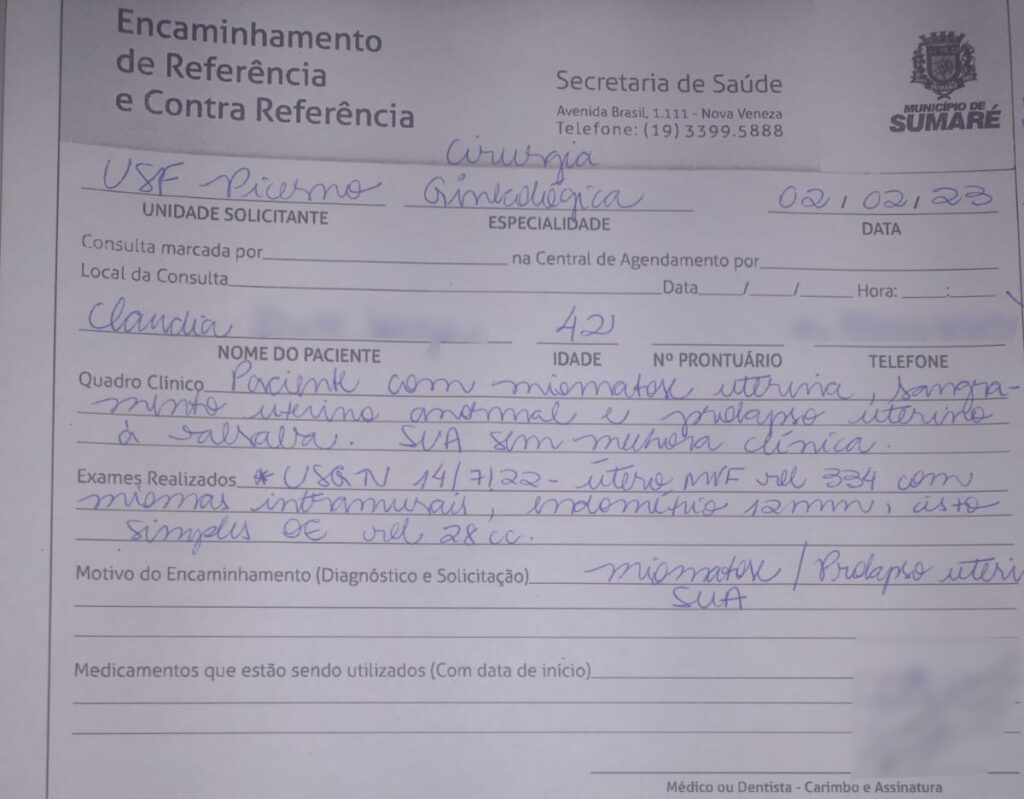 Encaminhamento
de Referência
e Contra Referência
Secretaria de Saúde
Avenida Brasil, 1.111 - Nova Veneza
Telefone: (19) 3399.5888
MUNICÍPIO DE
SUMARÉ
Cirurgia
USF Picerno Ginecológica 02/02/23
UNIDADE SOLICITANTE ESPECIALIDADE DATA
Consulta marcada por na Central de Agendamento por
Local da Consulta Data / / Hora: :
Claudia 42
NOME DO PACIENTE IDADE Nº PRONTUÁRIO TELEFONE
Quadro Clínico Paciente com miomatose uterina, sangra-
mento uterino anormal e prolapso uterino
à valsalva. SUA sem melhora clínica.
Exames Realizados * USGTV 14/7/22 - útero MVF vol 334 com
miomas intramurais, endométrio 12 mm, cisto
simples OE vol 28 cc.
Motivo do Encaminhamento (Diagnóstico e Solicitação) miomatose / Prolapso uteri
SUA
Medicamentos que estão sendo utilizados (Com data de início)
Médico ou Dentista - Carimbo e Assinatura